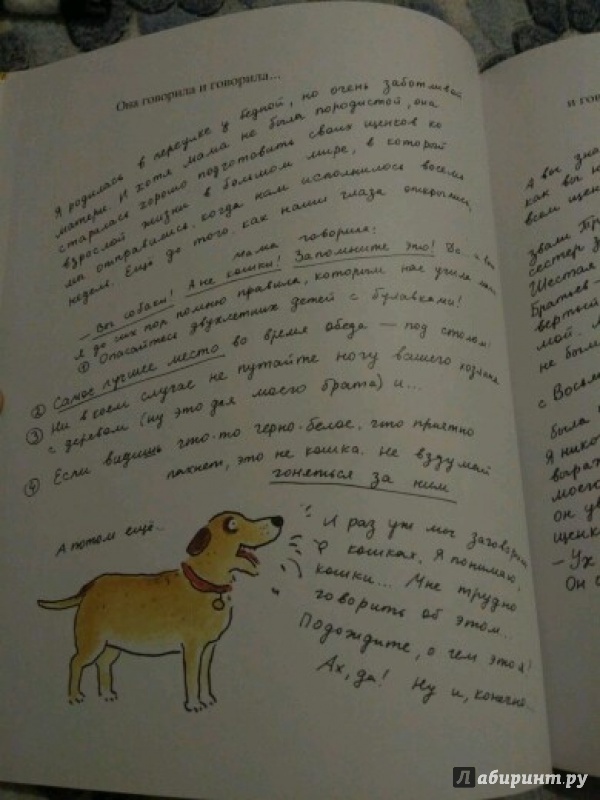 Она говорила и говорила...
Я родилась в переулке у бедной, но очень заботливой
матери. И хотя мама не была породистой, она
старалась хорошо подготовить своих щенков ко
взрослой жизни в большом мире, в который
мы отправились, когда нам исполнилось восемь
недель. Ещё до того, как наши глаза открылись,
мама говорила:
— Вы собаки! А не кошки! Запомните это! Да... а вот
я до сих пор помню правила, которым нас учила мама
① Опасайтесь двухлетних детей с булавками!
② Самое лучшее место во время обеда — под столом!
③ Ни в коем случае не путайте ногу вашего хозяина
с деревом (ну это для моего брата) и...
④ Если видишь что-то черно-белое, что приятно
пахнет, это не кошка. Не вздумай
гоняться за ним
А потом ещё...
И раз уж мы заговорили
о кошках. Я понимаю,
кошки... Мне трудно
говорить об этом...
Подождите, о чем это я?
Ах, да! Ну и, конечно...
и гов
А вы зна
как вы н
всем щен
звали Тр
сестер З
Шестая
Братьев —
вертый
мой. М
не были
с Восьм
была
Я нико
выраж
моего
он ув
щенк
— Ух
Он с
Лабиринт.ру